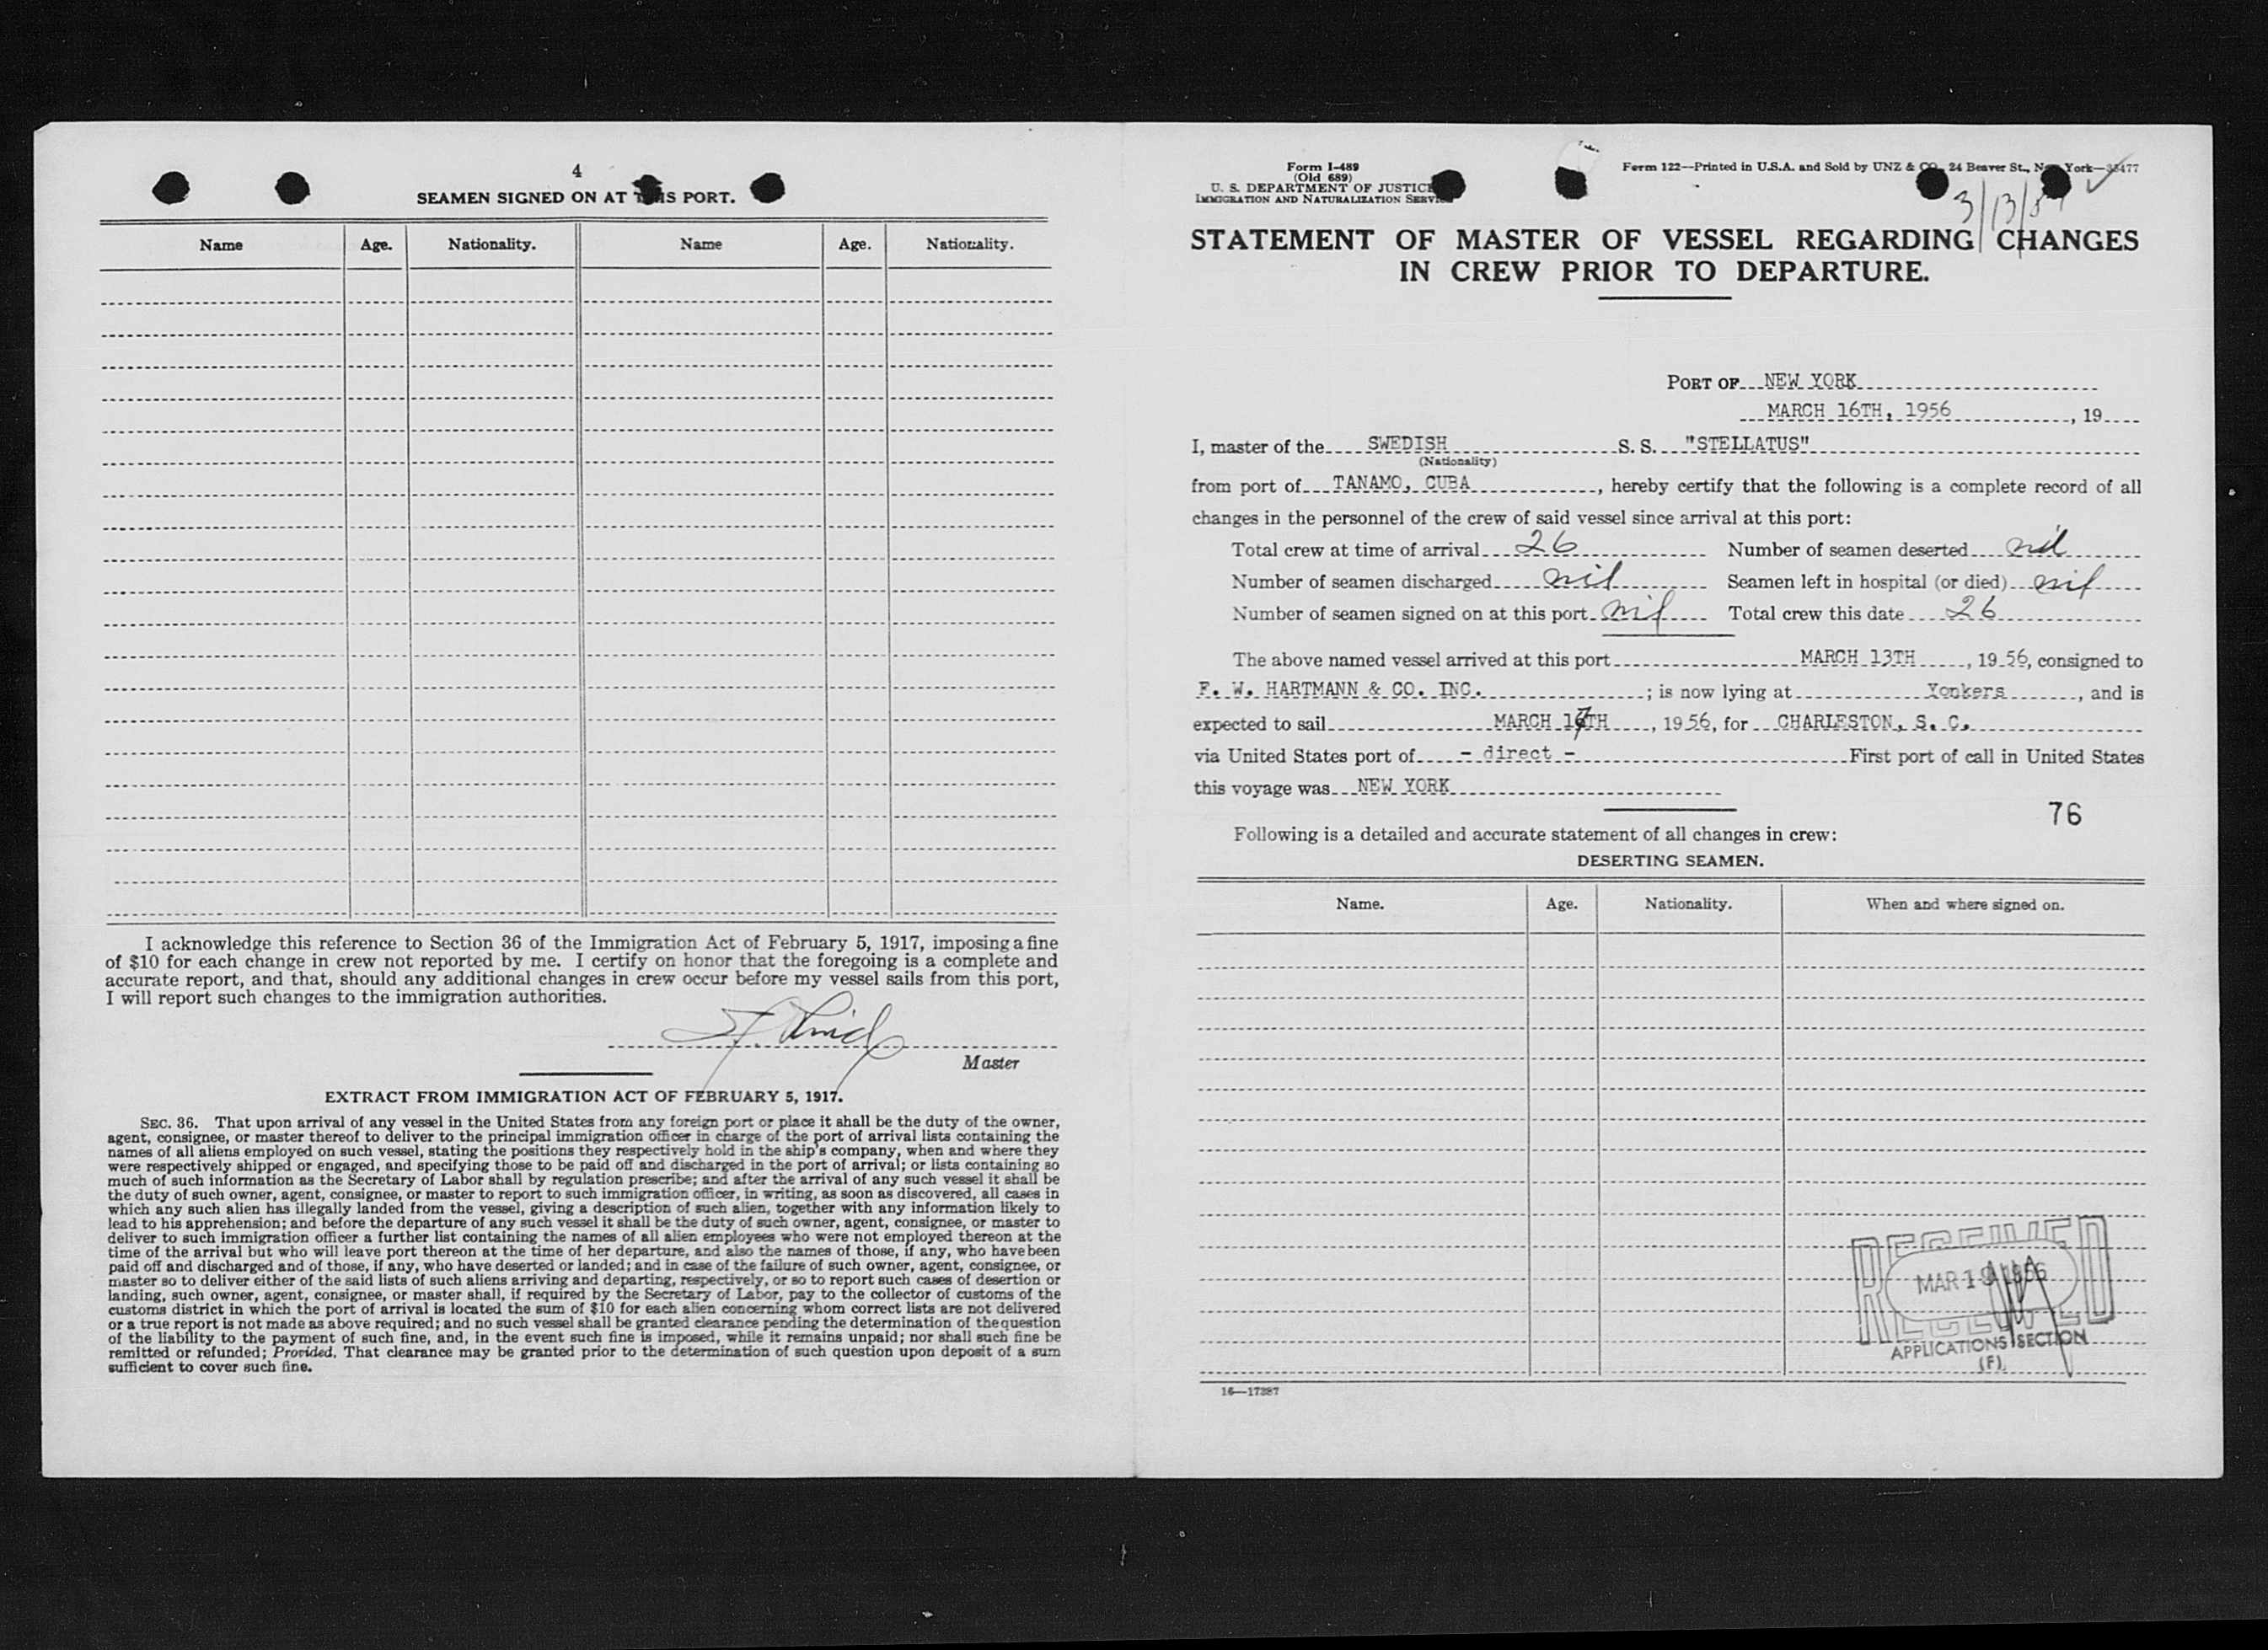 4
SEAMEN SIGNED ON AT THIS PORT.
Name Age. Nationality. Name Age. Nationality.
I acknowledge this reference to Section 36 of the Immigration Act of February 5, 1917, imposing a fine
of $10 for each change in crew not reported by me. I certify on honor that the foregoing is a complete and
accurate report, and that, should any additional changes in crew occur before my vessel sails from this port,
I will report such changes to the immigration authorities.
Master
EXTRACT FROM IMMIGRATION ACT OF FEBRUARY 5, 1917.
SEC. 36. That upon arrival of any vessel in the United States from any foreign port or place it shall be the duty of the owner,
agent, consignee, or master thereof to deliver to the principal immigration officer in charge of the port of arrival lists containing the
names of all aliens employed on such vessel, stating the positions they respectively hold in the ship's company, when and where they
were respectively shipped or engaged, and specifying those to be paid off and discharged in the port of arrival; or lists containing so
much of such information as the Secretary of Labor shall by regulation prescribe; and after the arrival of any such vessel it shall be
the duty of such owner, agent, consignee, or master to report to such immigration officer, in writing, as soon as discovered, all cases in
which any such alien has illegally landed from the vessel, giving a description of such alien, together with any information likely to
lead to his apprehension; and before the departure of any such vessel it shall be the duty of such owner, agent, consignee, or master to
deliver to such immigration officer a further list containing the names of all alien employees who were not employed thereon at the
time of the arrival but who will leave port thereon at the time of her departure, and also the names of those, if any, who have been
paid off and discharged and of those, if any, who have deserted or landed; and in case of the failure of such owner, agent, consignee, or
master so to deliver either of the said lists of such aliens arriving and departing, respectively, or so to report such cases of desertion or
landing, such owner, agent, consignee, or master shall, if required by the Secretary of Labor, pay to the collector of customs of the
customs district in which the port of arrival is located the sum of $10 for each alien concerning whom correct lists are not delivered
or a true report is not made as above required; and no such vessel shall be granted clearance pending the determination of the question
of the liability to the payment of such fine, and, in the event such fine is imposed, while it remains unpaid; nor shall such fine be
remitted or refunded; Provided, That clearance may be granted prior to the determination of such question upon deposit of a sum
sufficient to cover such fine.
Form I-489
(Old 689)
U. S. DEPARTMENT OF JUSTICE
IMMIGRATION AND NATURALIZATION SERVICE
Form 122—Printed in U.S.A. and Sold by UNZ & CO., 24 Beaver St., New York
3/13/5
STATEMENT OF MASTER OF VESSEL REGARDING CHANGES
IN CREW PRIOR TO DEPARTURE.
PORT OF NEW YORK
MARCH 16TH, 1956, 19
I, master of the SWEDISH S. S. "STELLATUS"
(Nationality)
from port of TANAMO, CUBA, hereby certify that the following is a complete record of all
changes in the personnel of the crew of said vessel since arrival at this port:
Total crew at time of arrival 26 Number of seamen deserted nil
Number of seamen discharged nil Seamen left in hospital (or died) nil
Number of seamen signed on at this port nil Total crew this date 26
The above named vessel arrived at this port MARCH 13TH, 1956, consigned to
F. W. HARTMANN & CO. INC.; is now lying at Yonkers, and is
expected to sail MARCH 17TH, 1956, for CHARLESTON, S. C.
via United States port of - direct - First port of call in United States
this voyage was NEW YORK
76
Following is a detailed and accurate statement of all changes in crew:
DESERTING SEAMEN.
Name. Age. Nationality. When and where signed on.
RECEIVED
MAR 19 1956
RECEIVED
APPLICATIONS SECTION
(F)
16—17387